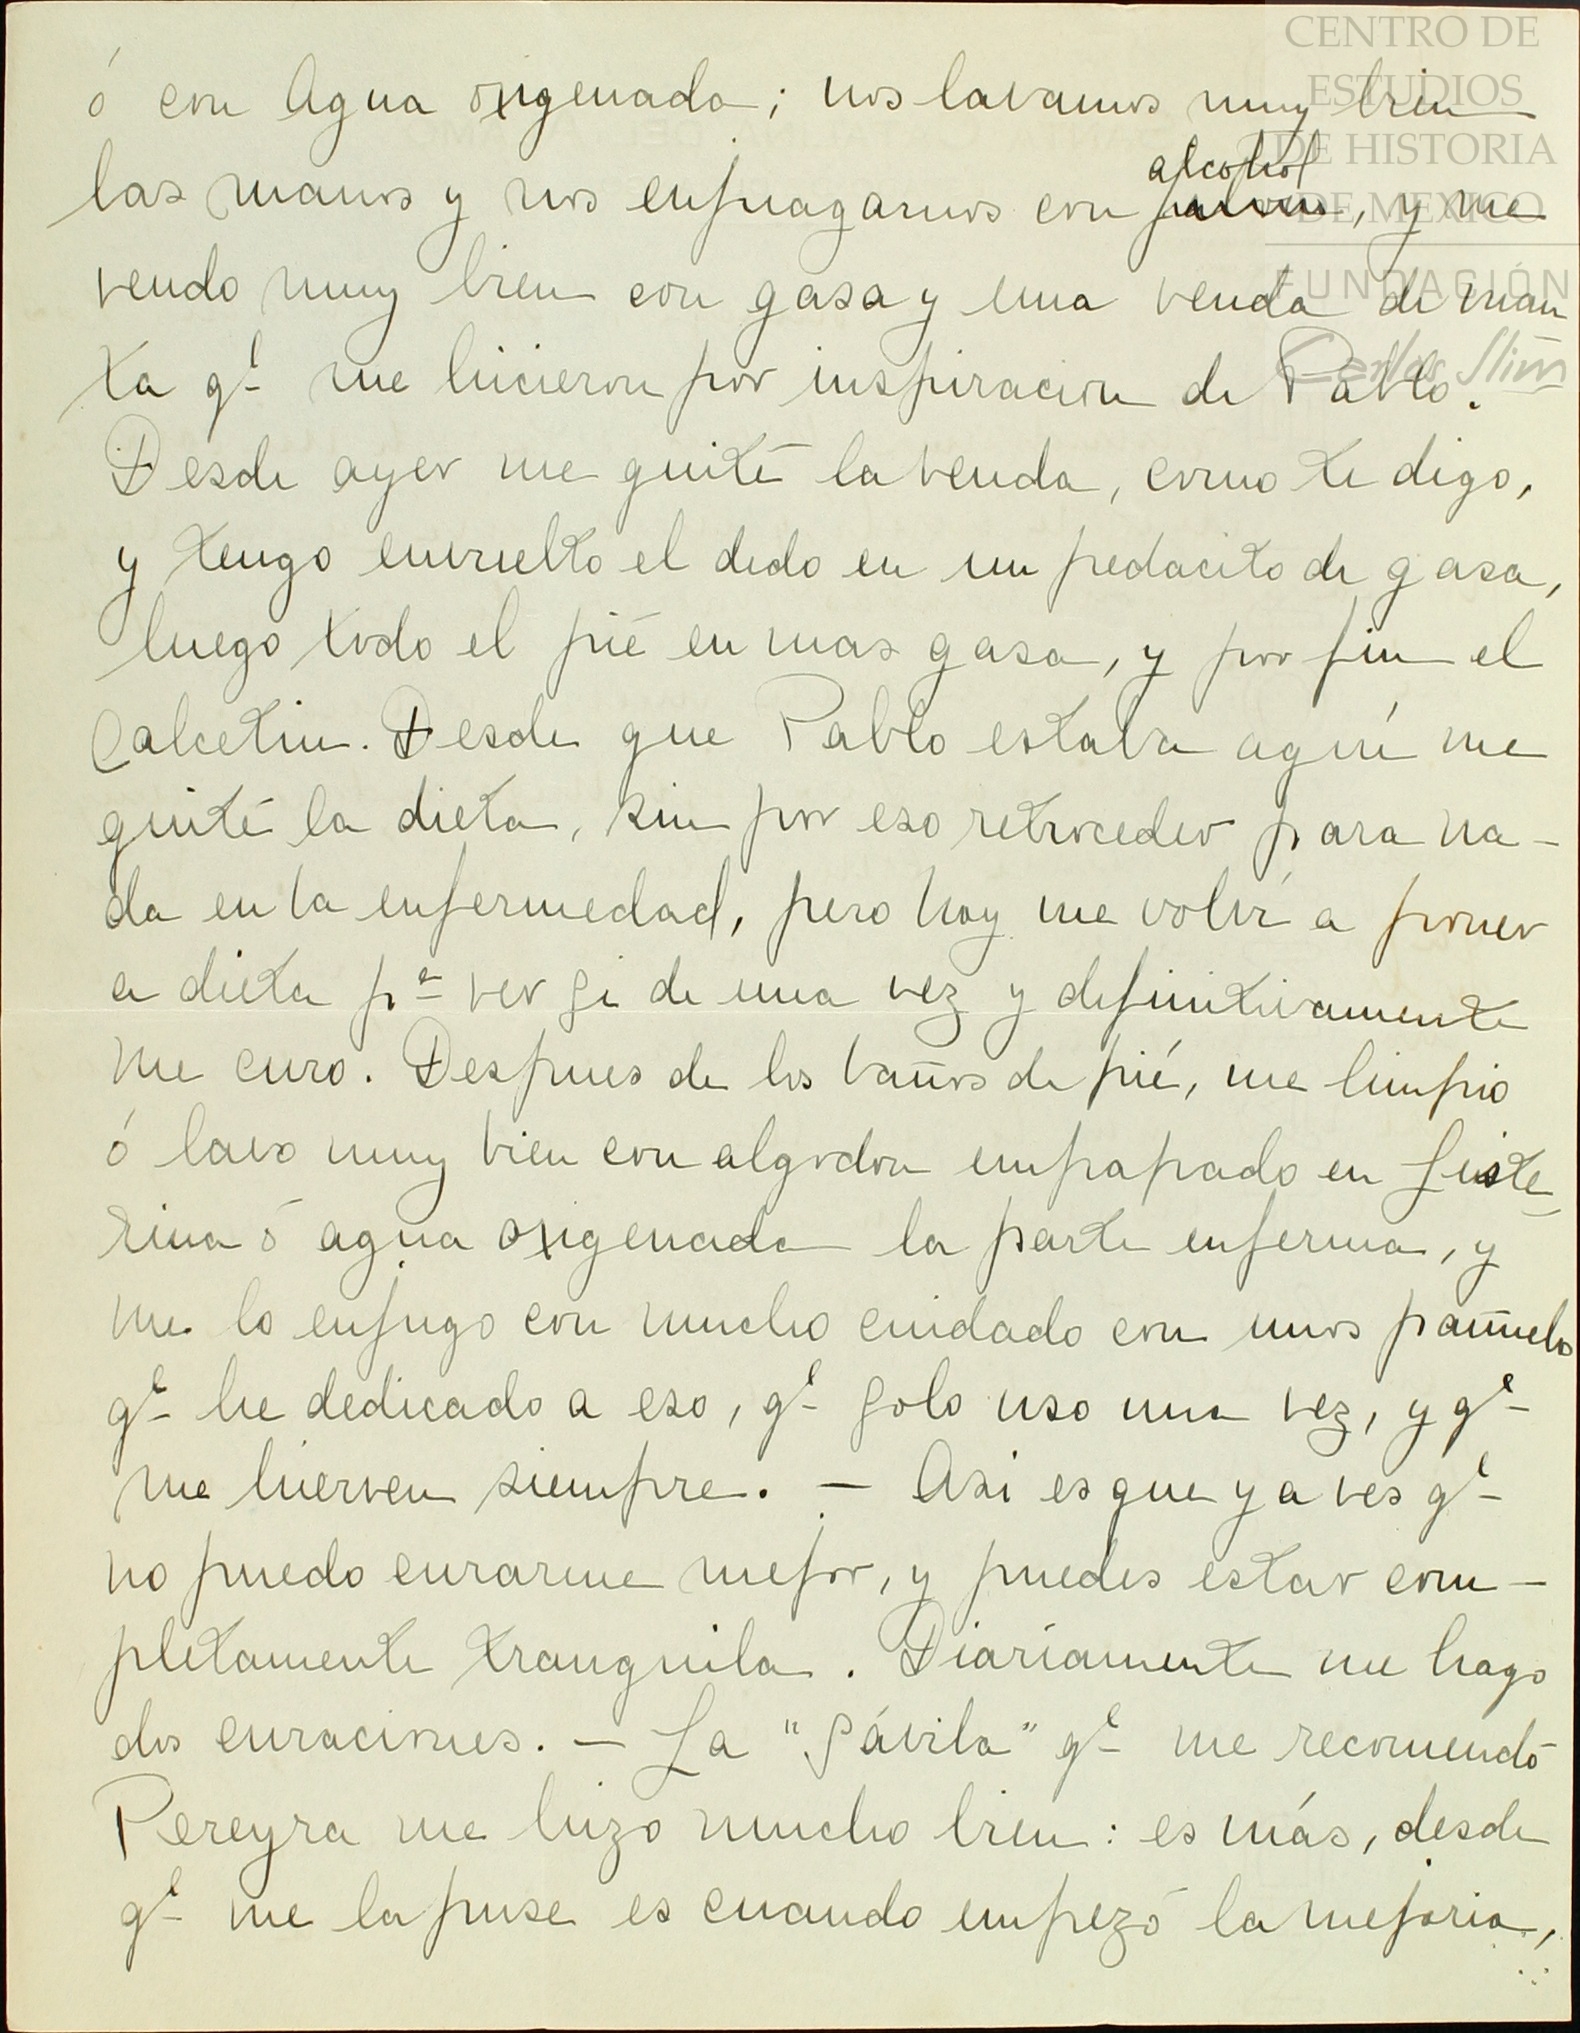 CENTRO DE
ESTUDIOS
DE HISTORIA
DE MEXICO
FUNDACIÓN
Carlos Slim
ó con Agua oxigenada; nos lavamos muy bien
alcohol
las manos y nos enjuagamos con jabon, y me
vendo muy bien con gasa y una venda de man
ta qe me hicieron por inspiracion de Pablo.
Desde ayer me quité la venda, como te digo,
y tengo envuelto el dedo en un pedacito de gasa,
luego todo el pié en mas gasa, y por fin el
Calcetin. Desde que Pablo estaba aquí me
quité la dieta, sin por eso retroceder para na-
da en la enfermedad, pero hoy me volví a poner
a dieta pa ver si de una vez y definitivamente
me curo. Despues de los baños de pié, me limpio
ó lavo muy bien con algodon empapado en Liste_
rina ó agua oxigenada la parte enferma, y
me lo enjugo con mucho cuidado con unos pañuelos
qe he dedicado a eso, qe solo uso una vez, y qe
me hierven siempre. — Asi es que ya ves qe
no puedo curarme mejor, y puedes estar com-
pletamente tranquila. Diariamente me hago
dos curaciones. — La "Sávila" qe me recomendó
Pereyra me hizo mucho bien: es más, desde
qe me la puse es cuando empezó la mejoria,